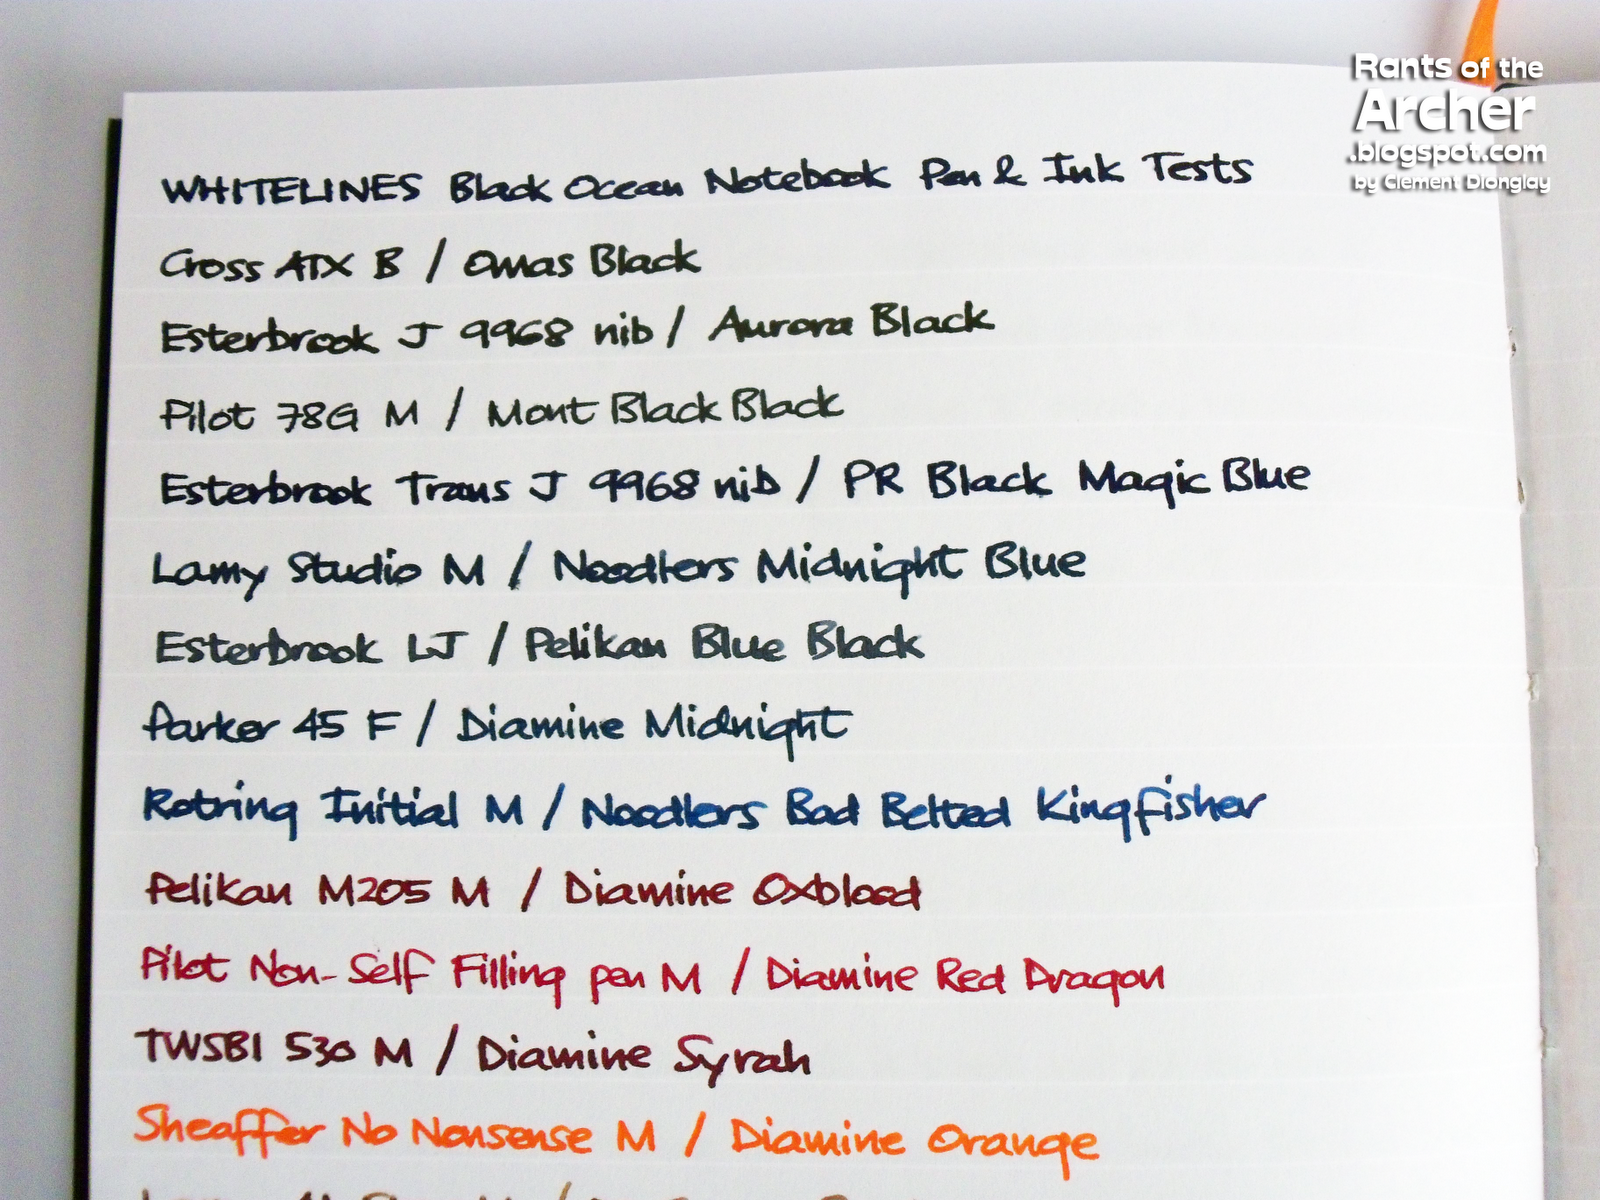 Rants of the
Archer
.blogspot.com
by Clement Dionglay
WHITELINES Black Ocean Notebook Pen & Ink Tests
Cross ATX B / Omas Black
Esterbrook J 9968 nib / Aurora Black
Pilot 78G M / Mont Black Black
Esterbrook Trans J 9968 nib / PR Black Magic Blue
Lamy Studio M / Noodlers Midnight Blue
Esterbrook LJ / Pelikan Blue Black
Parker 45 F / Diamine Midnight
Rotring Initial M / Noodlers Bad Belted Kingfisher
Pelikan M205 M / Diamine Oxblood
Pilot Non-Self Filling pen M / Diamine Red Dragon
TWSBI 530 M / Diamine Syrah
Sheaffer No Nonsense M / Diamine Orange